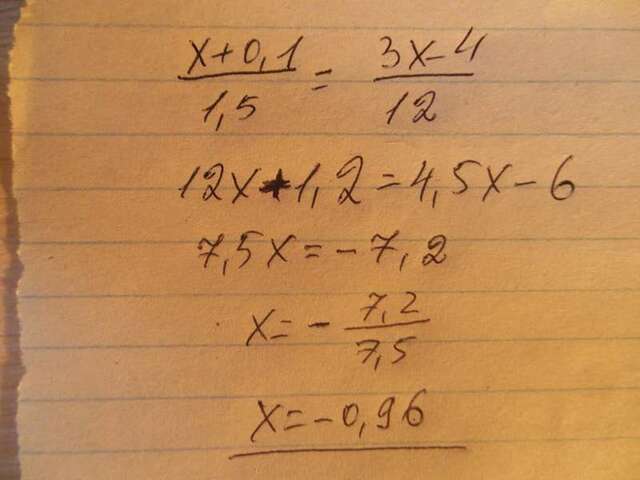 x+0,1/1,5 = 3x-4/12
12x+1,2=4,5x-6
7,5x=-7,2
x=-7,2/7,5
x=-0,96